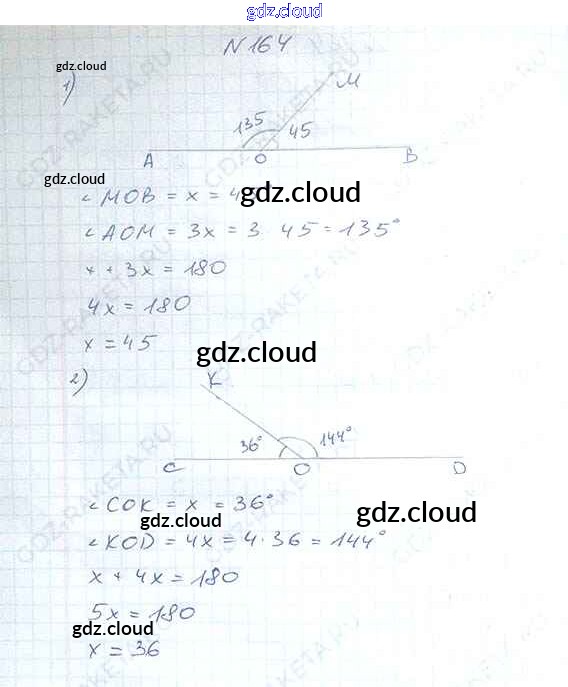 gdz.cloud
N 164
gdz.cloud
1)
M
135
45
A
O
B
gdz.cloud
gdz.cloud
∠MOB = x = 4
∠AOM = 3x = 3 · 45 = 135°
x + 3x = 180
4x = 180
x = 45
gdz.cloud
2)
K
36°
144°
C
O
D
∠COK = x = 36°
gdz.cloud
gdz.cloud
∠KOD = 4x = 4 · 36 = 144°
x + 4x = 180
5x = 180
gdz.cloud
x = 36
GDZ-RAKETA.RU